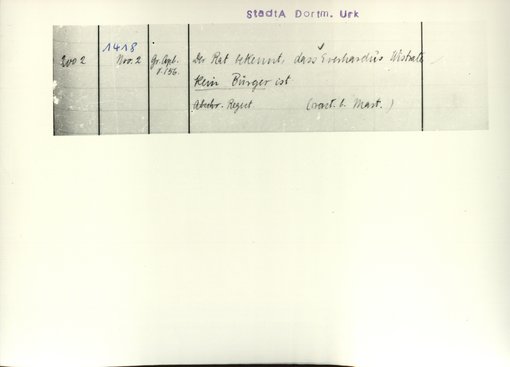 StadtA Dortm. Urk
2002 1418 Nov. 2 Gr. Cop. I. 156. Der Rat bekennt, dass Everhardus Wistrate
kein Bürger ist
Abschr. Regest (rast. b. Mast.)